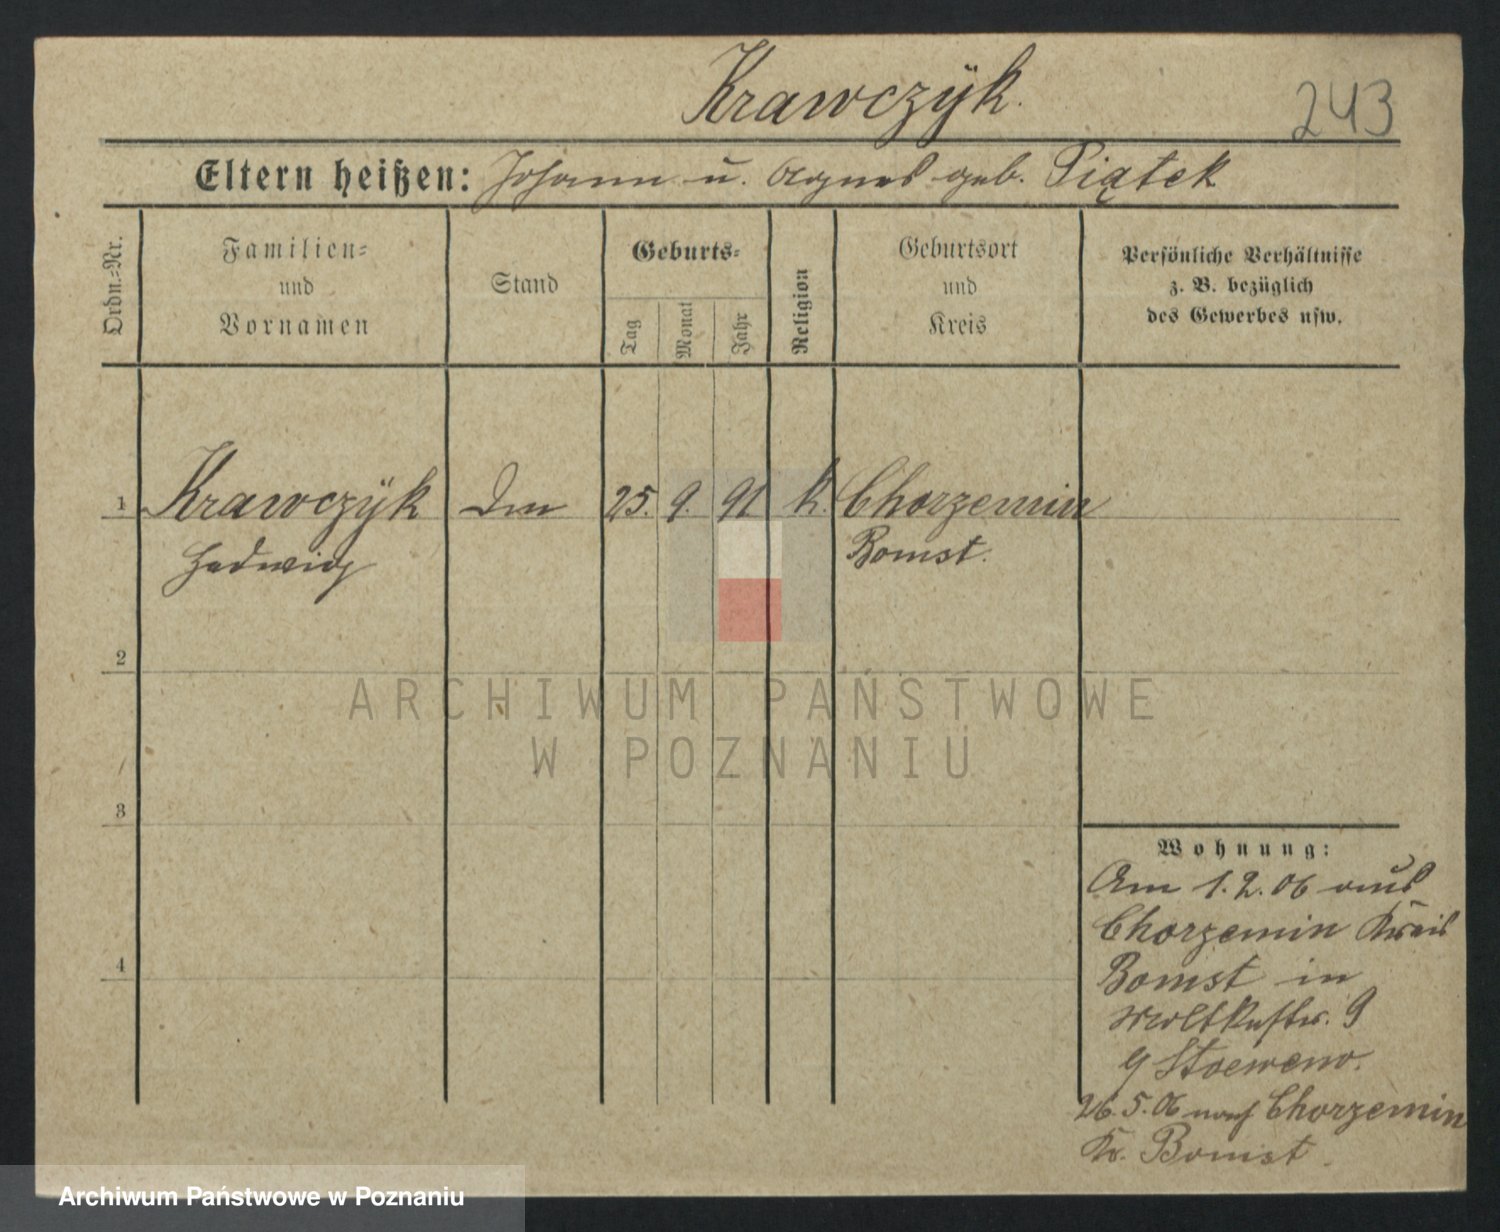 Krawczÿk.
243
Eltern heißen: Johann u. Agnes geb. Piątek
Ordn.=Nr.
Familien=
und
Vornamen
Stand
Geburts=
Tag
Monat
Jahr
Religion
Geburtsort
und
Kreis
Persönliche Verhältnisse
z. B. bezüglich
des Gewerbes usw.
1 Krawczÿk 25. 9. 91 k. Chorzemin
Hedwig Bomst.
2
3
4
Wohnung:
Am 1.2.06 aus
Chorzemin Kreis
Bomst in
Moltkestr. 9
26.5.06 nach Chorzemin
Kr. Bomst.
ARCHIWUM PAŃSTWOWE
W POZNANIU
Archiwum Państwowe w Poznaniu